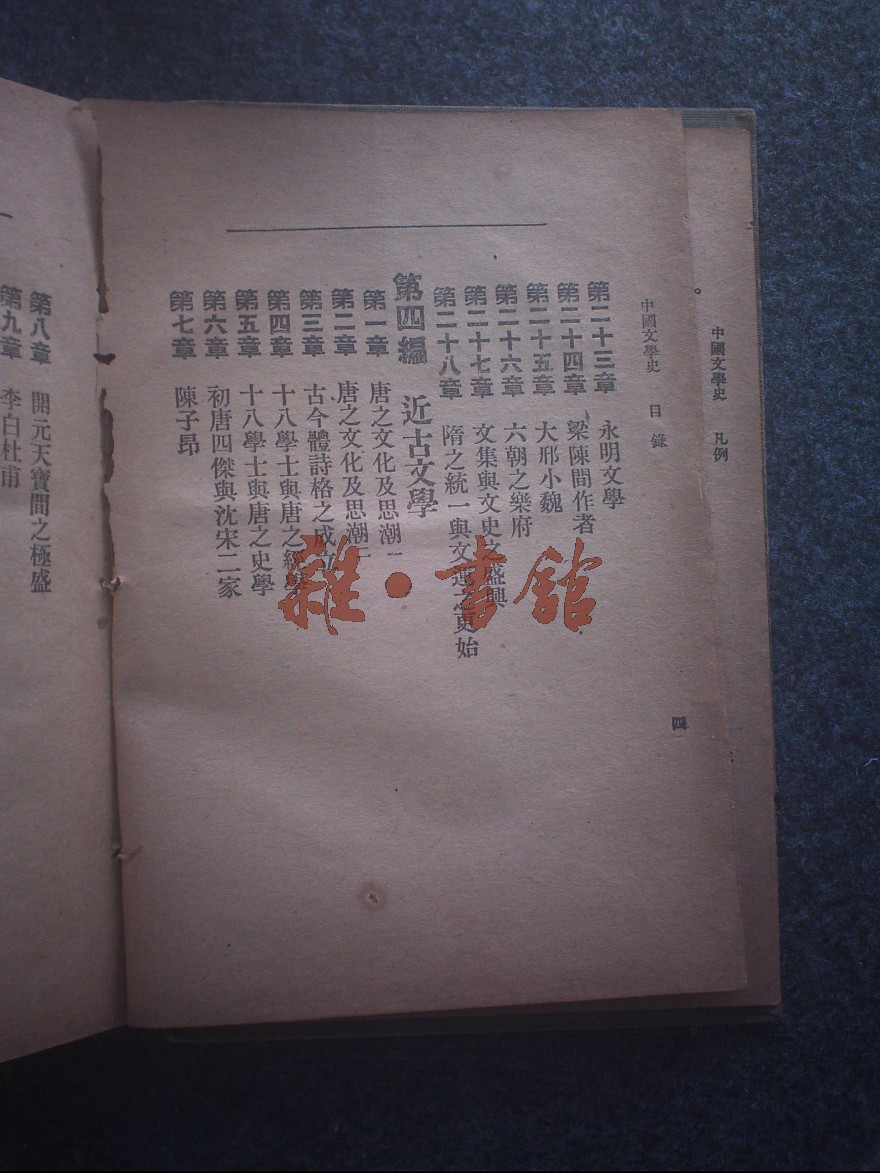 中國文學史 凡例
中國文學史 目錄
四
第二十三章 永明文學
第二十四章 梁陳間作者
第二十五章 大邢小魏
第二十六章 六朝之樂府
第二十七章 文集與文史之盛興
第二十八章 隋之統一與文運之更始
第四編 近古文學
第一章 唐之文化及思潮一
第二章 唐之文化及思潮二
第三章 古今體詩格之成立
第四章 十八學士與唐之經學
第五章 十八學士與唐之史學
第六章 初唐四傑與沈宋二家
第七章 陳子昂
第八章 開元天寶間之極盛
第九章 李白杜甫
雜·書館